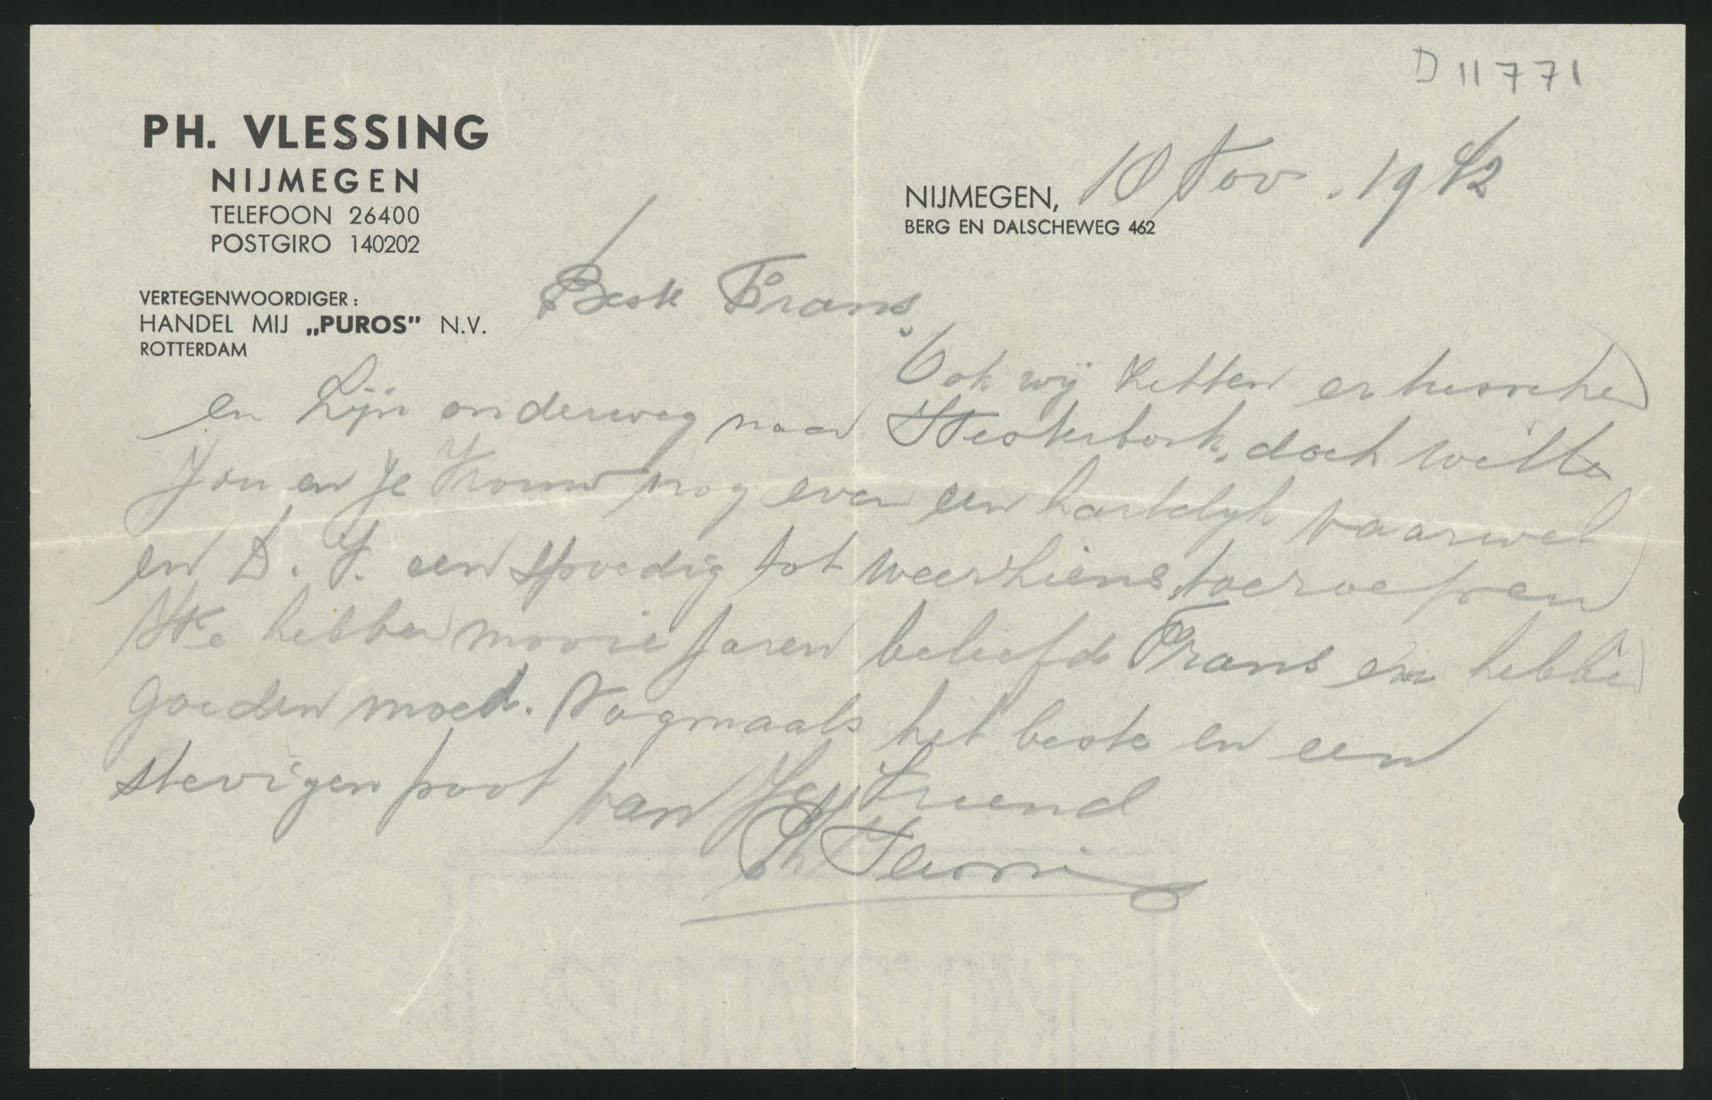 D 11771
PH. VLESSING
NIJMEGEN
TELEFOON 26400
POSTGIRO 140202
VERTEGENWOORDIGER:
HANDEL MIJ „PUROS” N.V.
ROTTERDAM
NIJMEGEN, 10 Nov. 1942
BERG EN DALSCHEWEG 462
Beste Frans,
Ook wij zitten er tusschen
en zijn onderweg naar Westerbork, doch wille
Jou en je Vrouw nog even een hartelijk vaarwel
en D.V. een spoedig tot weerziens toeroepen
We hebben mooie jaren beleefd Frans en hebben
goeden moed. Nogmaals het beste en een
stevigen poot van Je Vriend
Ph Vlessing